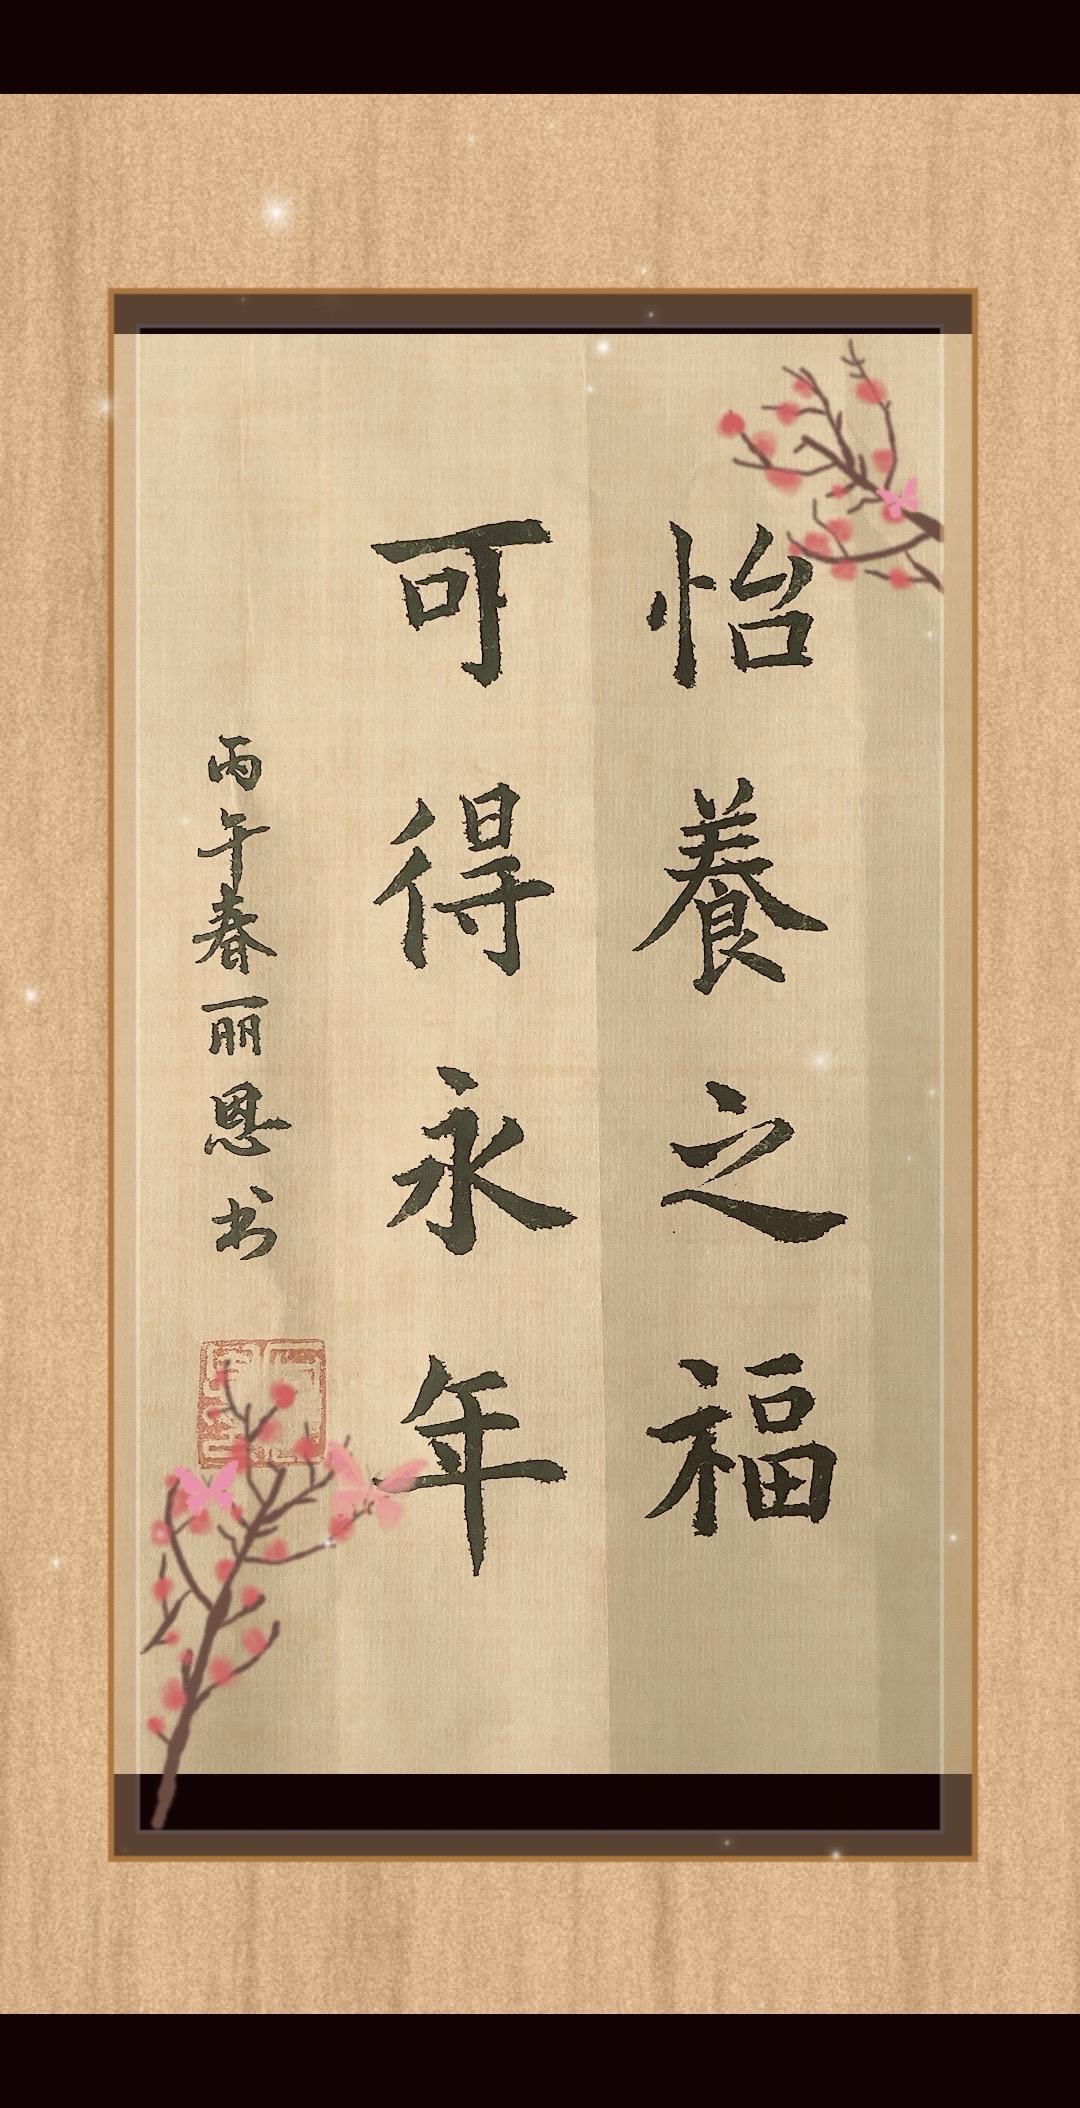 怡養之福
可得永年
丙午春丽恩书